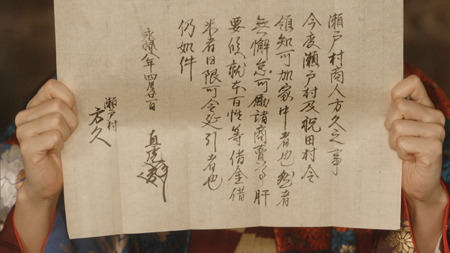 瀬戸村商人方久之事
今度瀬戸村及祝田村令
領知可加家中者也然者
無懈怠可励諸商賣事肝
要候就本百姓等借金借
米者日限可令延引者也
仍如件
永禄八年四月
直虎
瀬戸村
方久